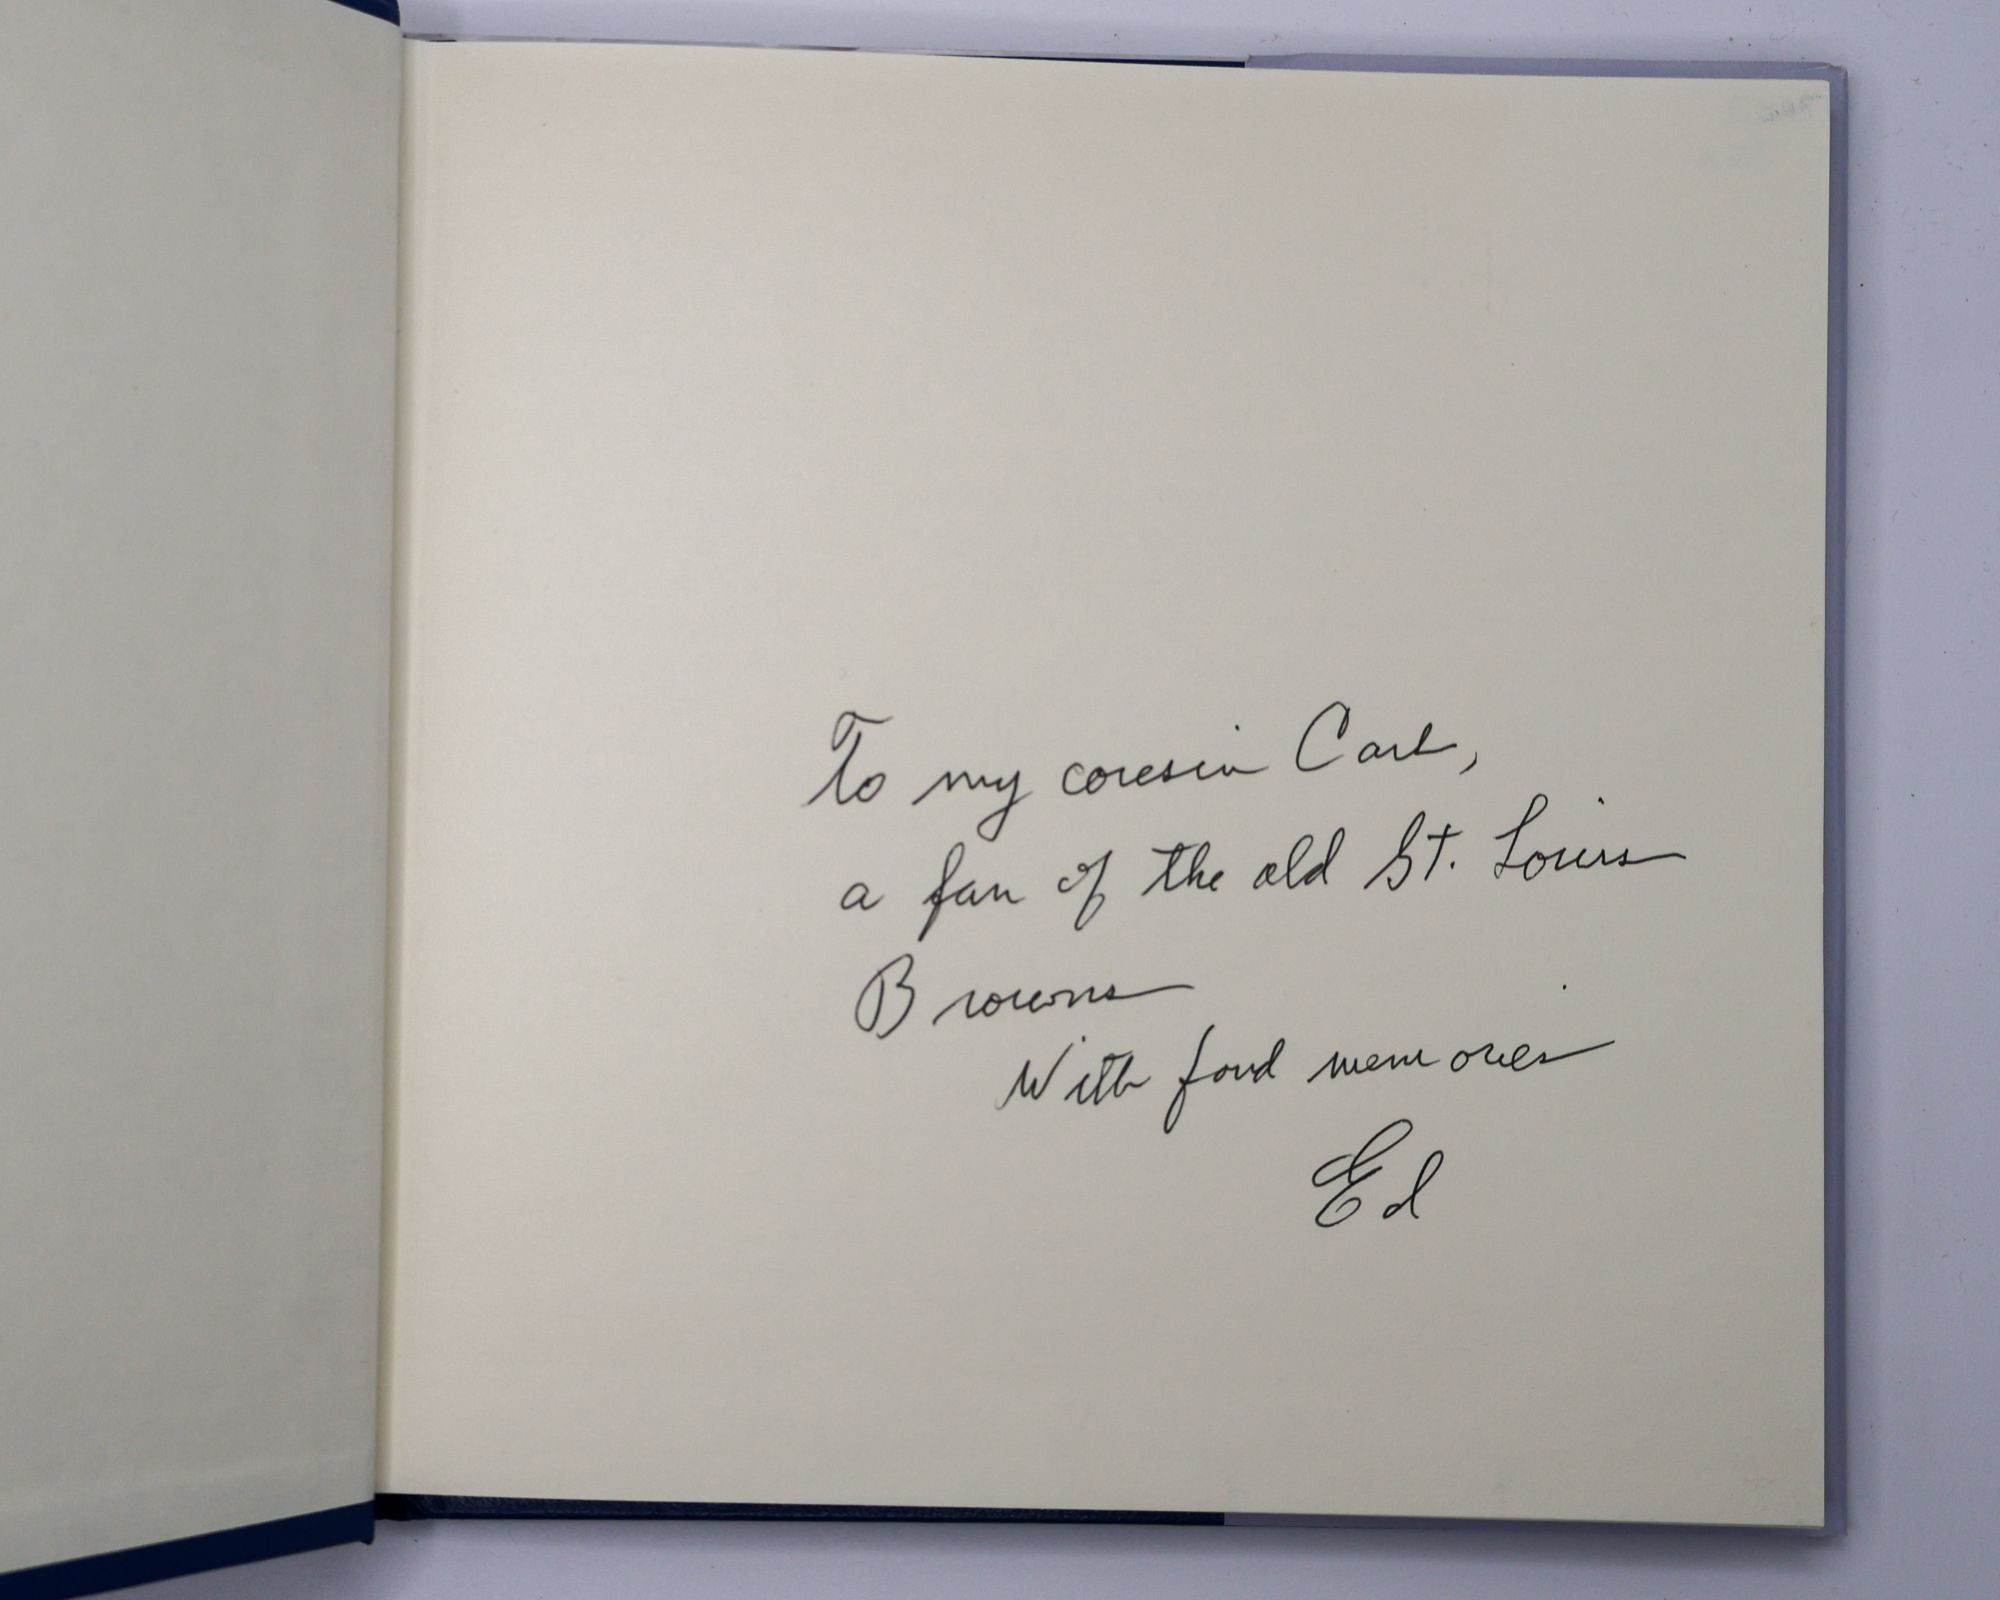 To my cousin Carl,
a fan of the old St. Louis
Browns
With fond memories
Ed